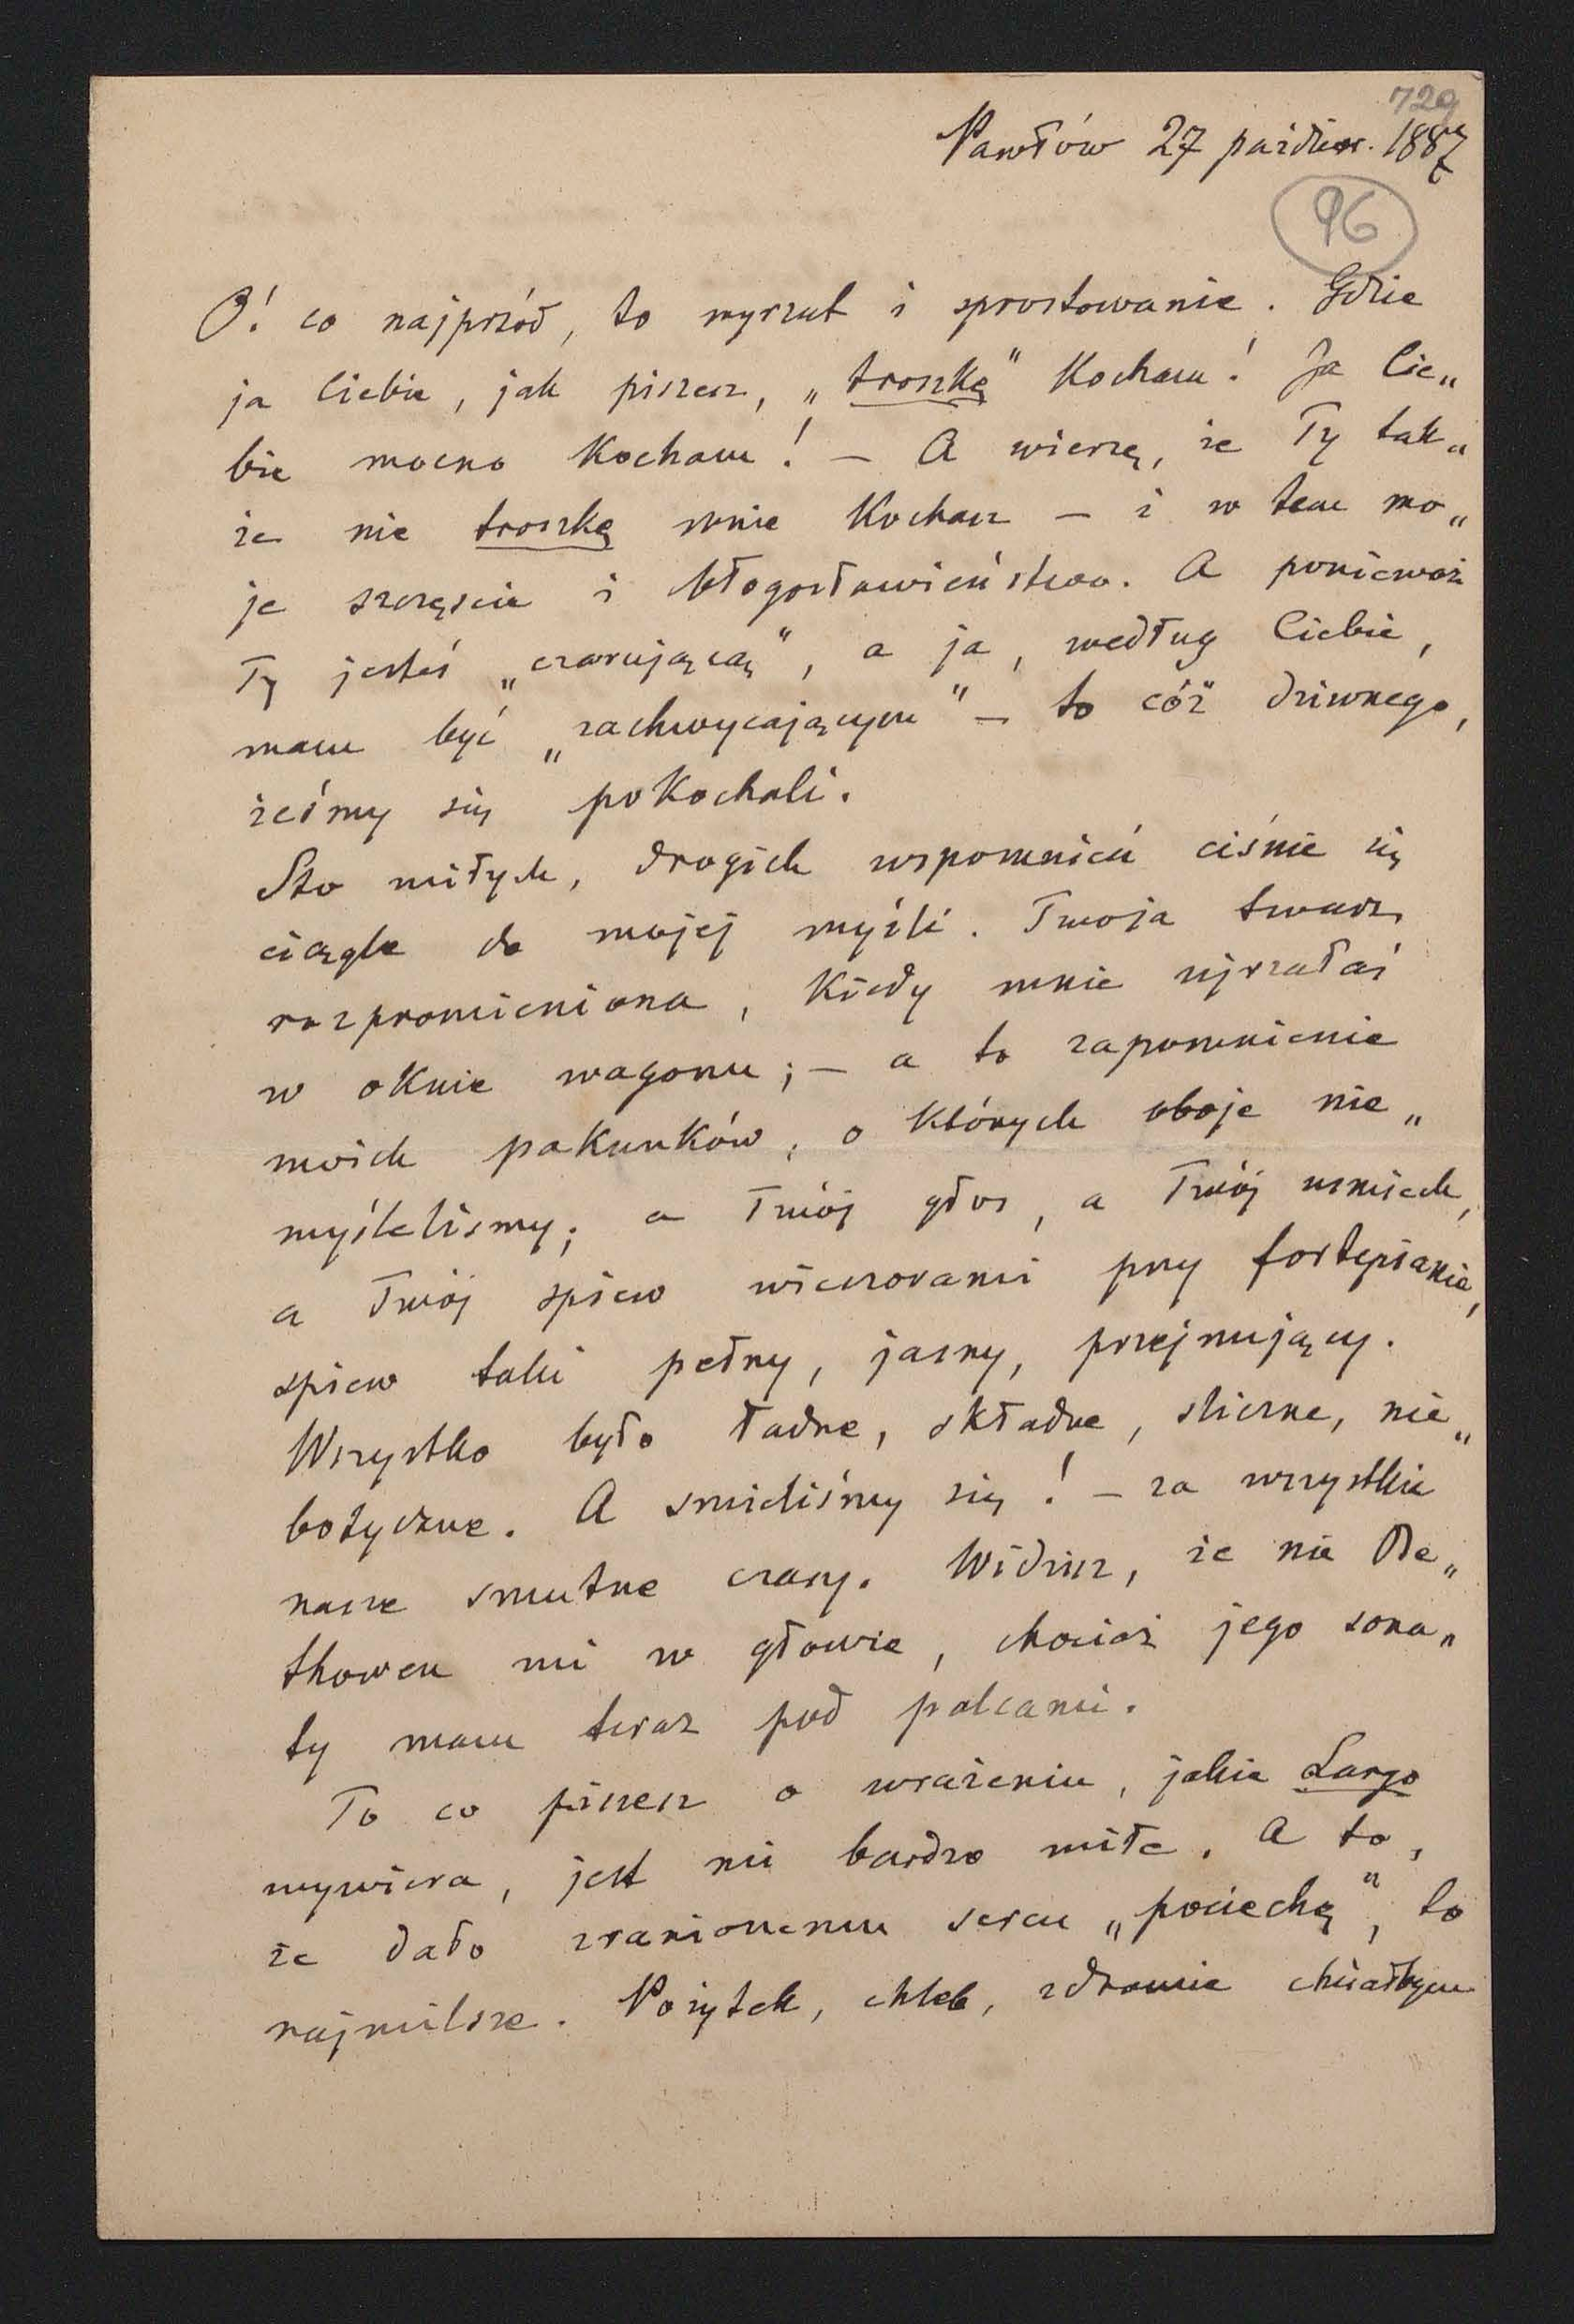 729
Pawłów 27 paździer. 1887
96
O! co najprzód, to wyrzut i sprostowanie. Gdzie
ja Ciebie, jak piszesz, „troszkę" kocham! Ja Cie„
bie mocno kocham! – A wierzę, że Ty tak„
że nie troszkę mnie kochasz – i w tem mo„
je szczęście i błogosławieństwo. A ponieważ
Ty jesteś „czarującą", a ja, według Ciebie,
mam być „zachwycającym" – to cóż dziwnego,
żeśmy się pokochali.
Sto miłych, drogich wspomnień ciśnie się
ciągle do mojej myśli. Twoja twarz
rozpromieniona, kiedy mnie ujrzałaś
w oknie wagonu; – a to zapomnienie
moich pakunków, o których oboje nie„
myślelismy; a Twój głos, a Twój usmiech,
a Twój spiew wieczorami przy fortepianie,
spiew taki pełny, jasny, przejmujący.
Wszystko było ładne, składne, sliczne, nie„
botyczne. A smieliśmy się! – za wszystkie
nasze smutne czasy. Widzisz, że nie Be„
thowen mi w głowie, chociaż jego sona„
ty mam teraz pod palcami.
To co piszesz o wrażeniu, jakie Largo
wywiera, jest mi bardzo miłe. A to,
że dało zranionemu sercu „pociechę", to
najmilsze. Pożytek, chleb, zdrowie chciałbym